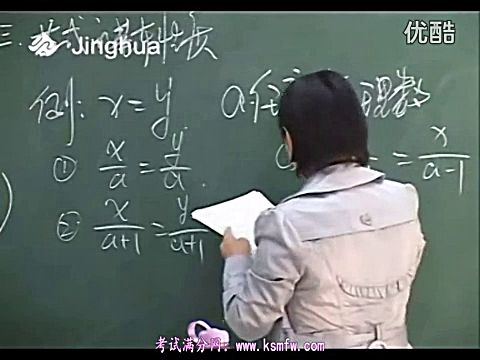 优酷
Jinghua
三、等式的基本性质
例: x=y
a任 理数
① x/a = y/a.
② x/(a+1) = y/(a+1)
= x/(a-1)
考试满分网: www.ksmfw.com